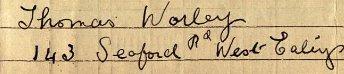 Thomas Worley
143 Seaford Rd West Ealing